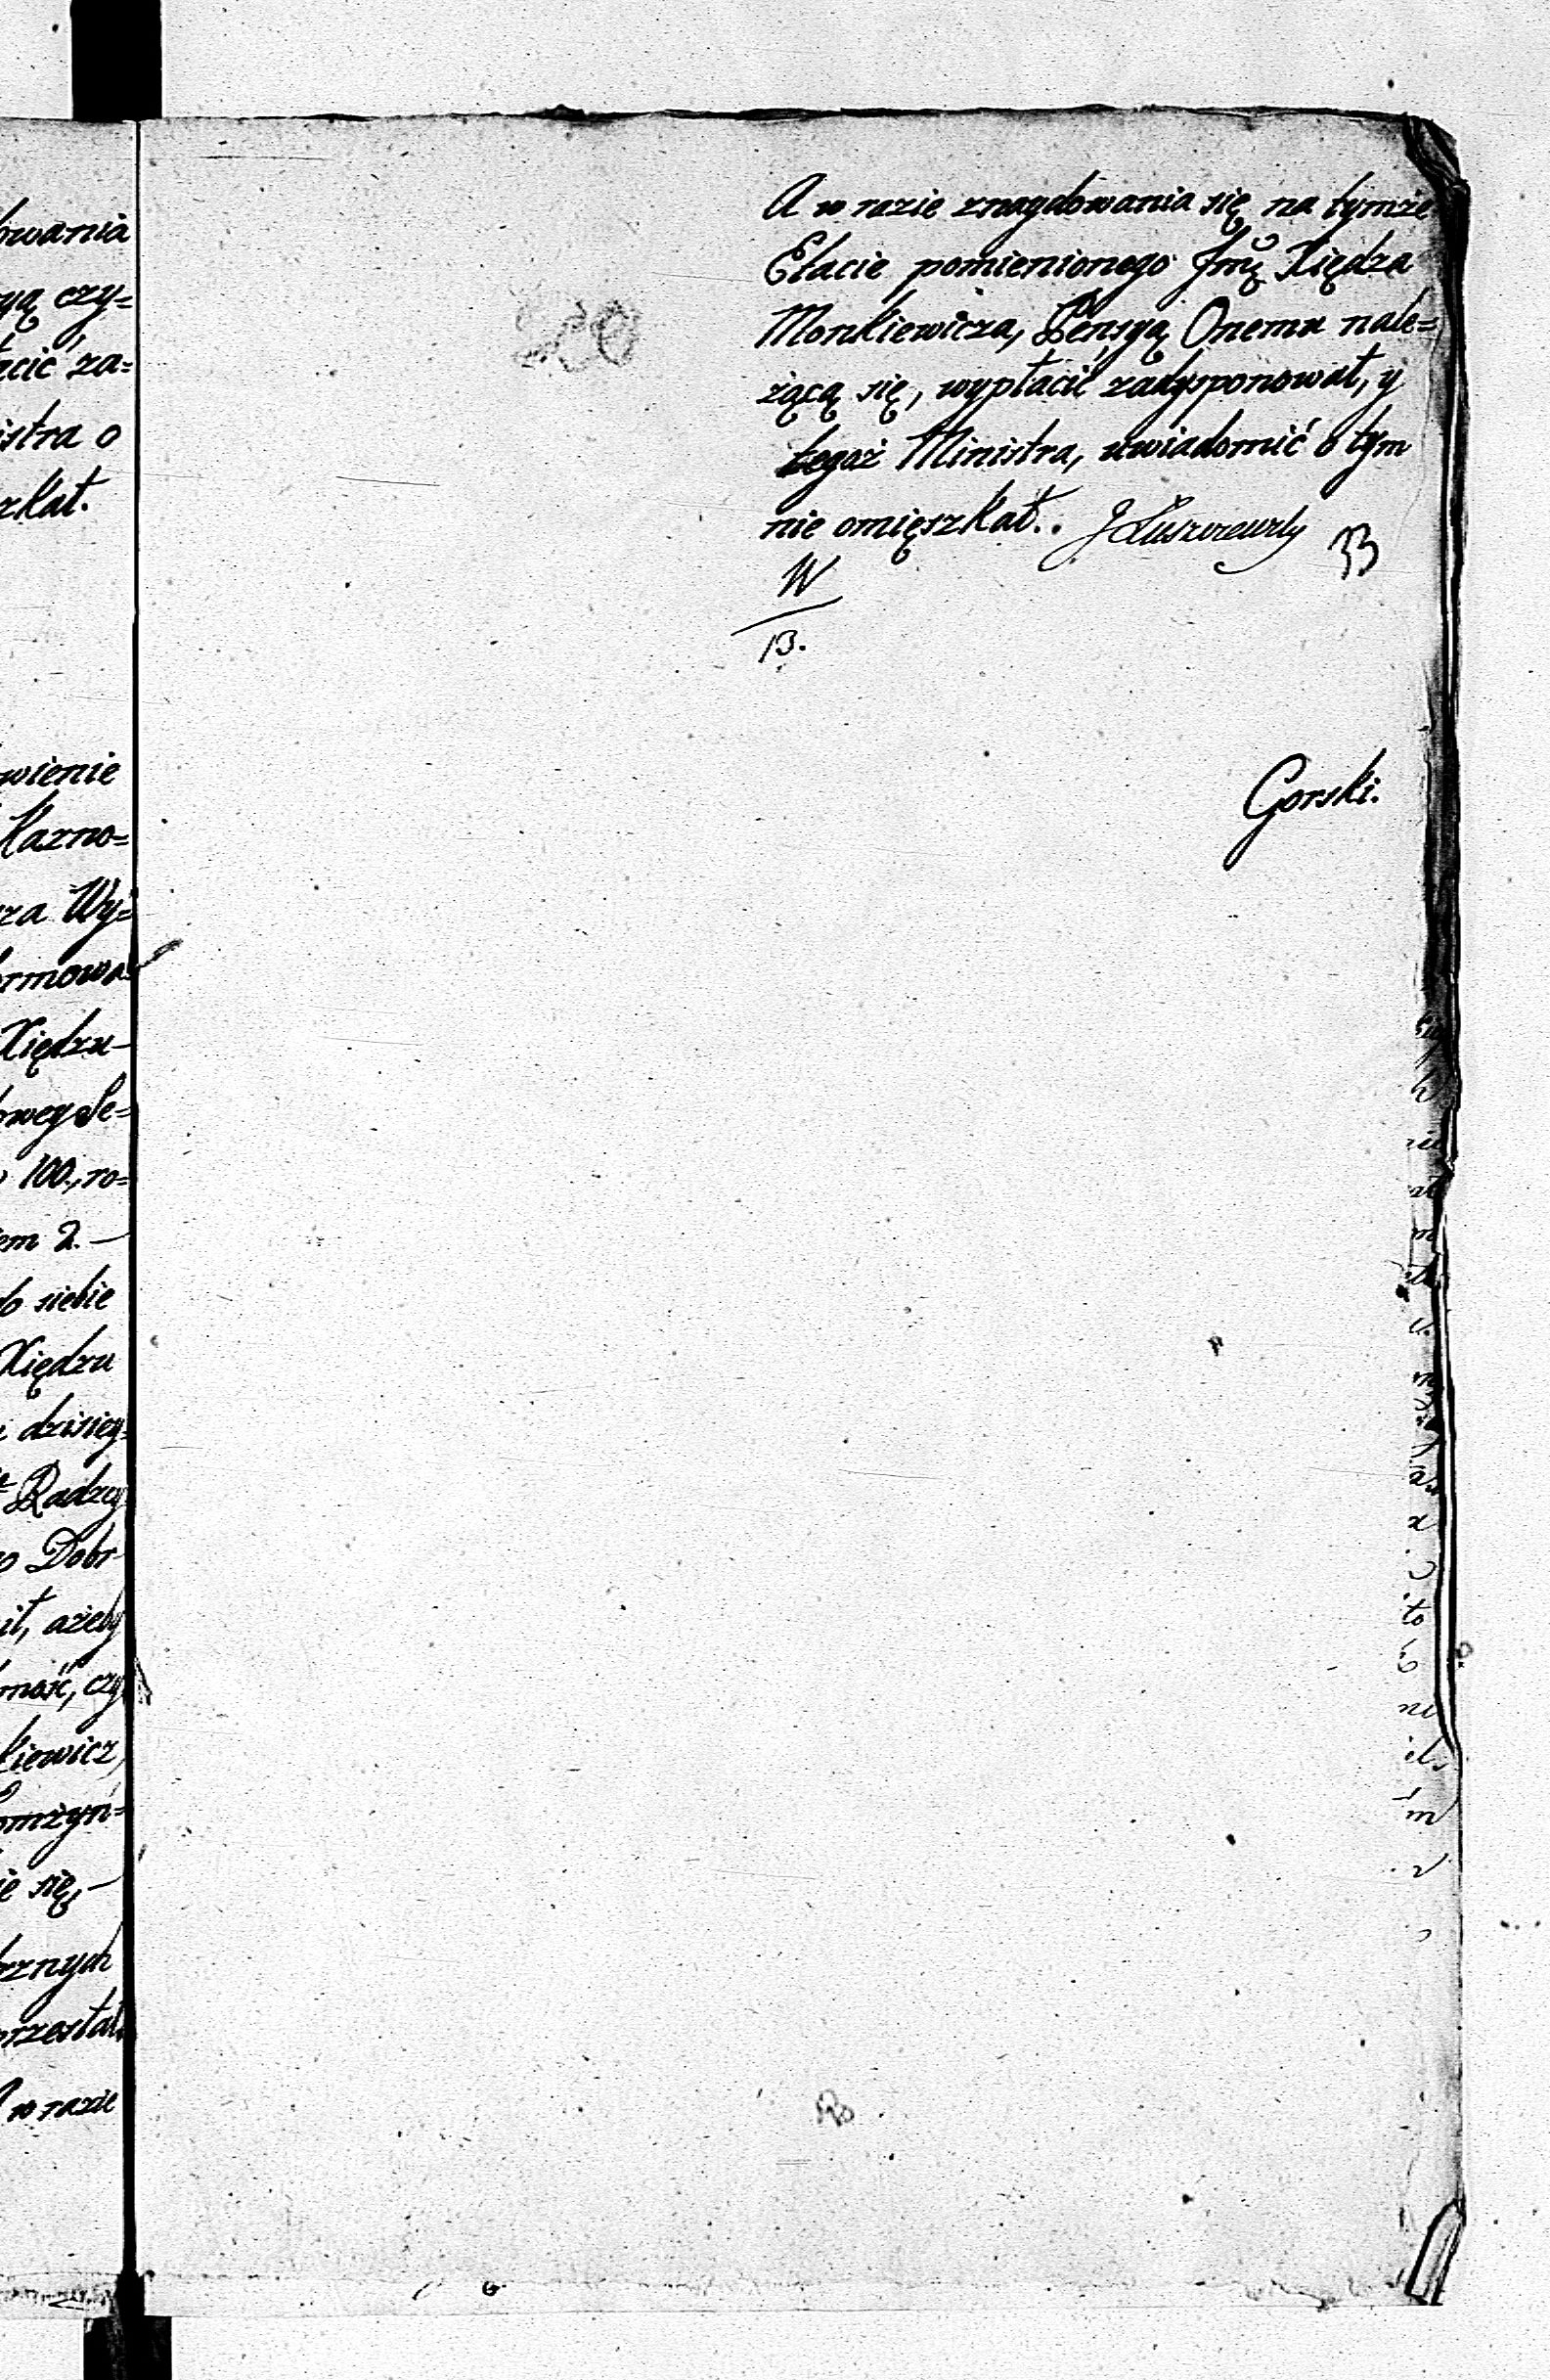 owania
yą czy=
acić za=
istra o
zkał.
wienie
Kazno=
za Wy=
ormowa
Xiędzu
owey Se=
100, ro=
em 2.
siebie
Xiędzu
dzisiey
Radzcy
Dobr
ił, ażeby
mość, czy
kiewicz,
omżyń=
ie się,
znych
przestał.
A w razie
20
A w razie znaydowania się na tymże
Etacie pomienionego Jmę Xiędza
Monkiewicza, Pensyą Onemu nale=
żącą się, wypłacić zadysponował, y
tegoż Ministra, uwiadomić o tym
nie omięszkał.. J Łuszczewsky 33
W
13.
Gorski.